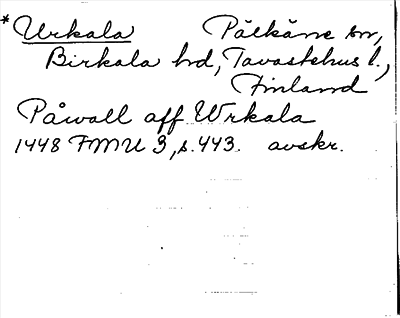 * Urkala Pälkäne sn,
Birkala hd, Tavastehus l.,
Finland
Påwall aff Wrkala
1448 FMU 3, s. 443. avskr.